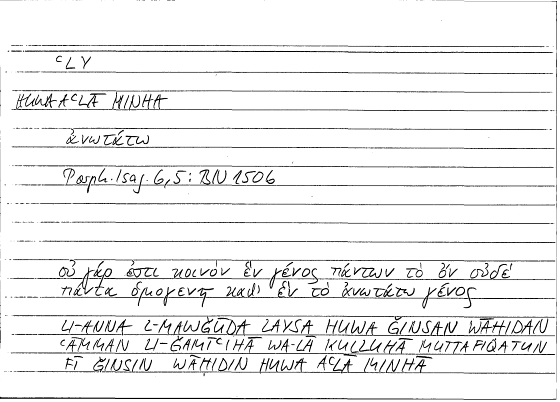 ᶜLY
HUWA AᶜLĀ MINHĀ
ἀνωτάτω
Porph. Isag. 6,5 : BN 150b
οὐ γάρ ἐστι κοινόν ἓν γένος πάντων τὸ ὄν οὐδέ
πάντα ὁμογενῆ καθ' ἓν τὸ ἀνωτάτω γένος
LI-ANNA L-MAWǦŪDA LAYSA HUWA ǦINSAN WĀḤIDAN
ᶜĀMMAN LI-ǦAMĪᶜIHĀ WA-LĀ KULLUHĀ MUTTAFIQATUN
FĪ ǦINSIN WĀḤIDIN HUWA AᶜLĀ MINHĀ